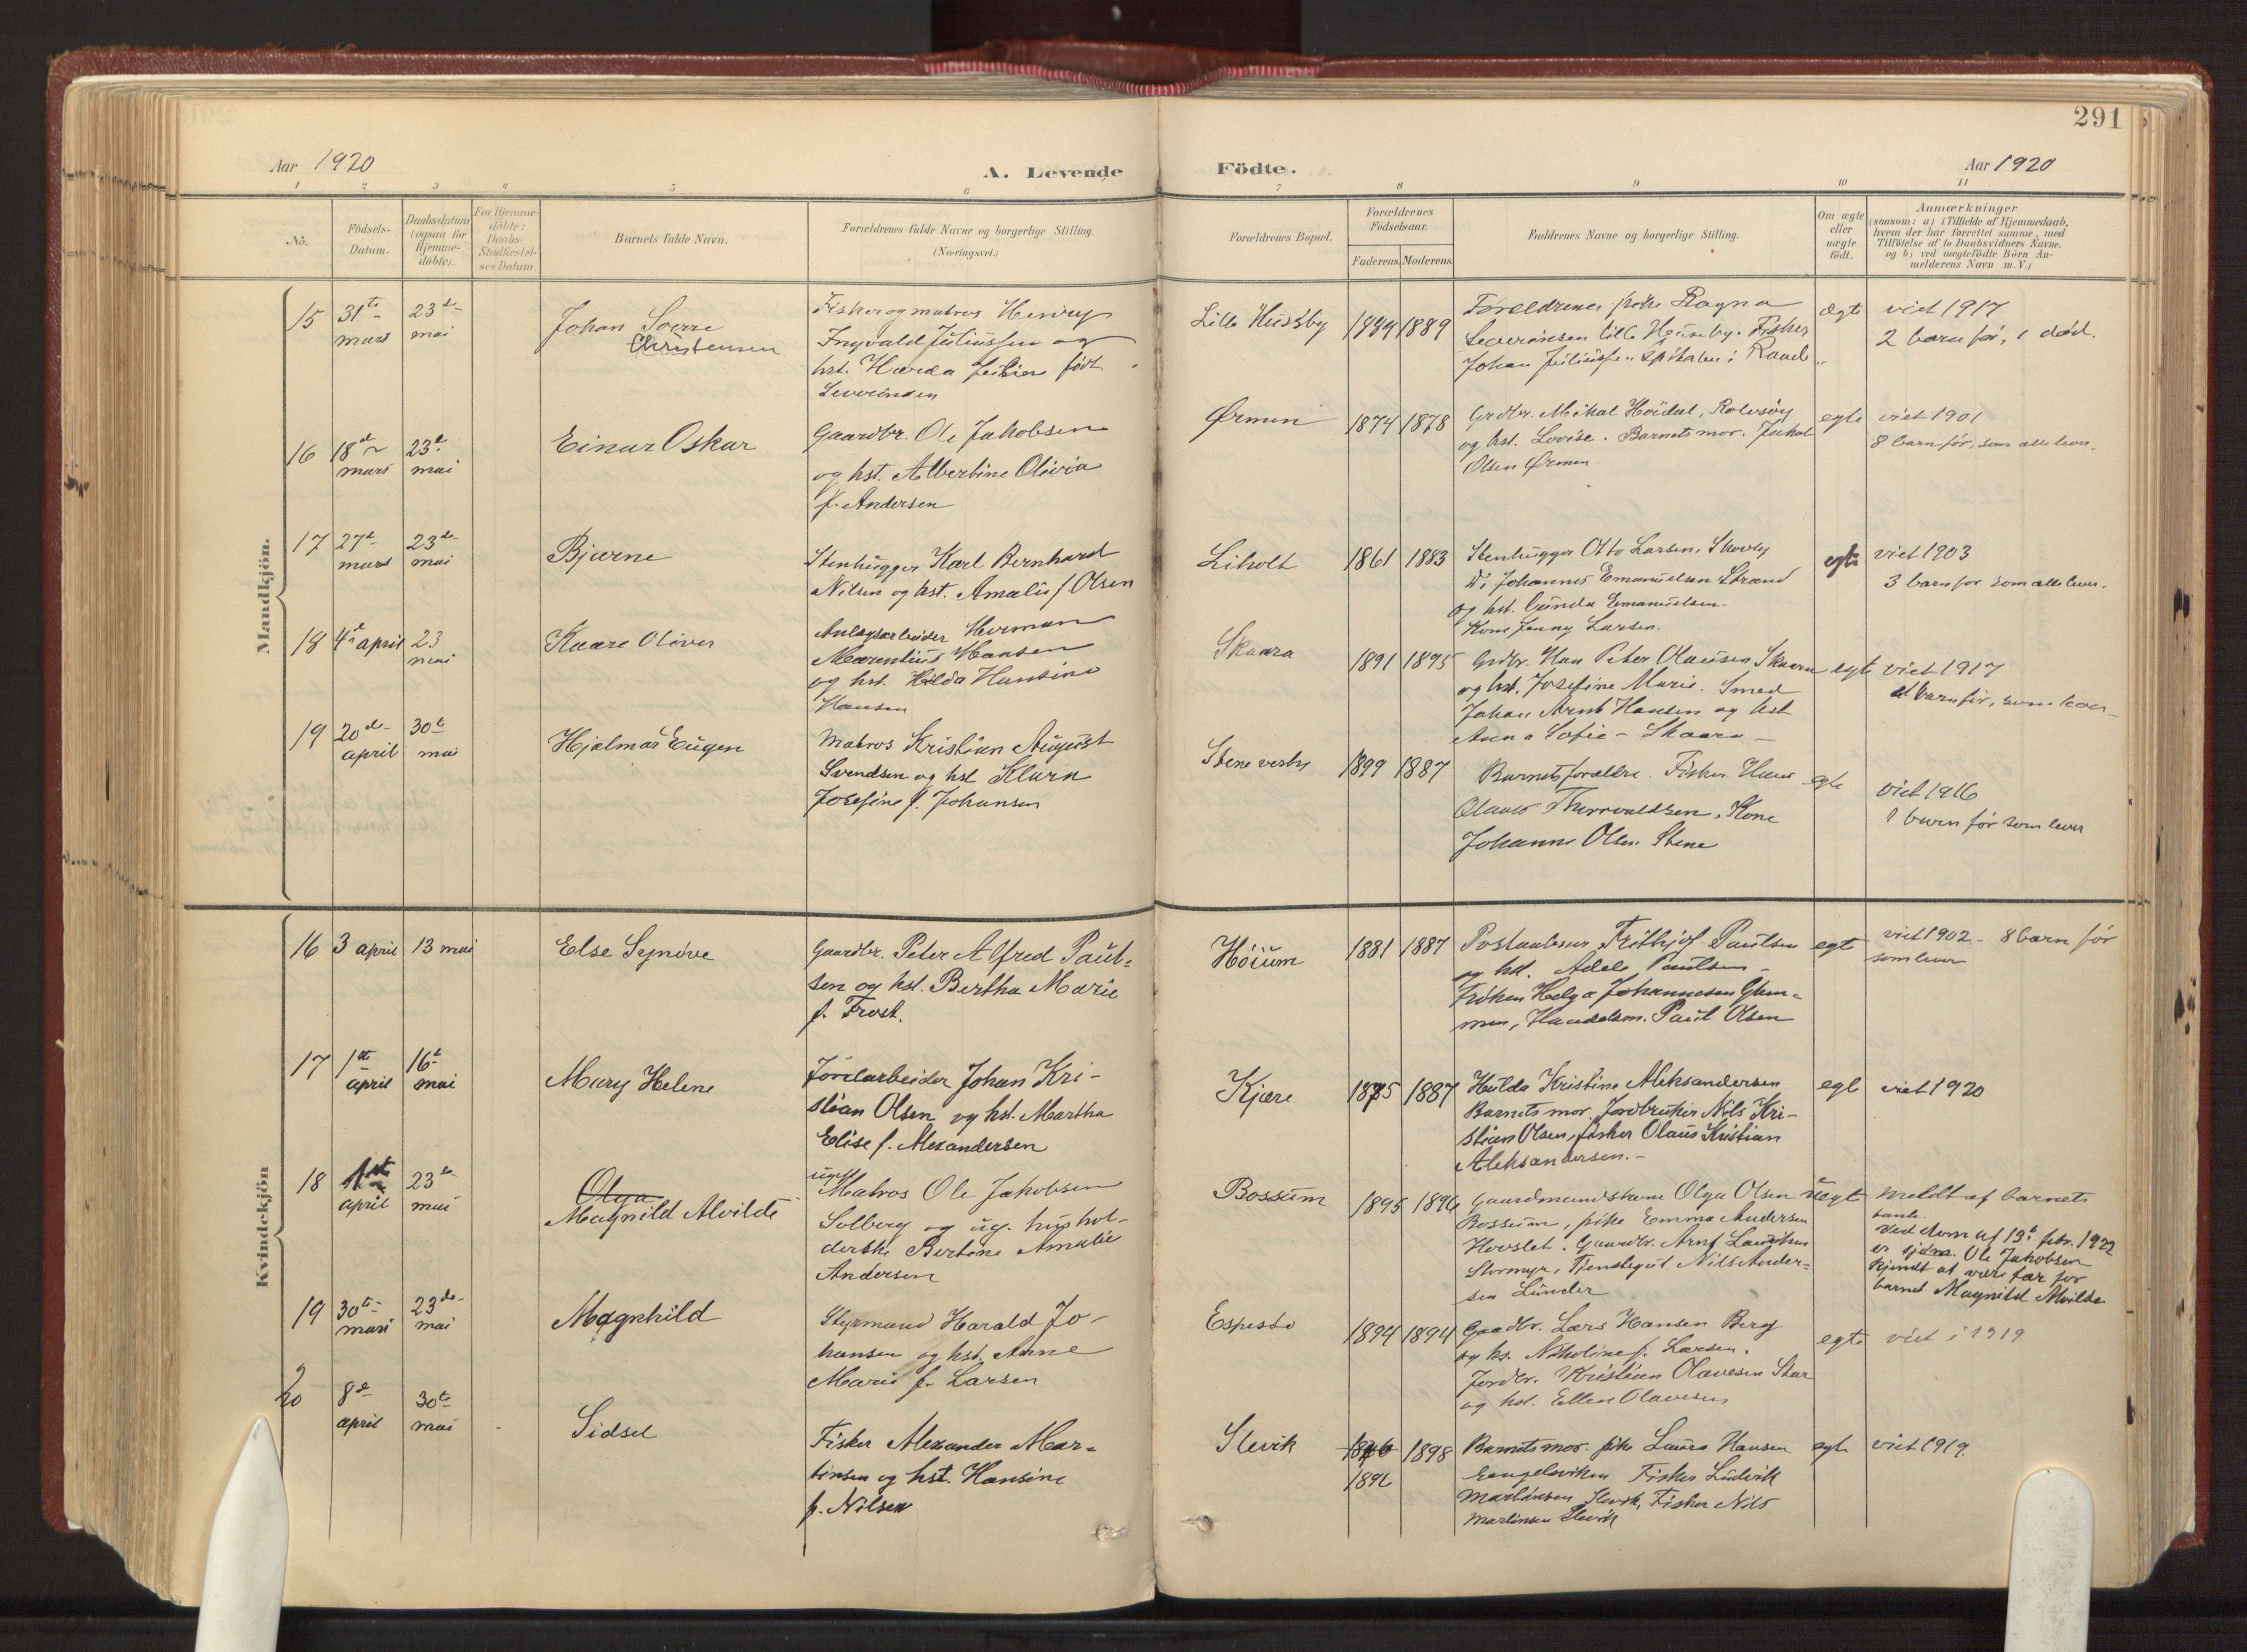 291
Aar 1920
A. Levende
Födte.
Aar 1920
1 2 3 4 5 6 7 8 9 10 11
No.
Födsels-
Datum.
Daabsdatum
(ogsaa for
Hjemme-
döbte).
For Hjemme-
döbte:
Daabs-
Stadfæstel-
ses Datum.
Barnets fulde Navn.
Forældrenes fulde Navne og borgerlige Stilling.
(Næringsvei.)
Forældrenes Bopæl.
Forældrenes
Födselsaar.
Faderens. Moderens.
Faddernes Navne og borgerlige Stilling.
Om ægte
eller
uægte
födt.
Anmærkninger
(saasom: a) i Tilfælde af Hjemmedaab,
hvem der har forrettet samme, med
Tilföielse af to Daabsvidners Navne,
og b) ved uægtefödte Börn An-
melderens Navn m. V.)
Mandkjön.
15
31te
mars
23de
mai
Johan Sverre
Christensen
Fisker og matros Henry
Ingvald Juliussen og
hst. Harda født
Severinsen
Lille Husby
1884 1889
Foreldrenes pike Ragna
Severinsen Lille Huseby. Fisker
Johan
ægte
viet 1917
2 barn før, 1 død.
16
18de
mars
23de
mai
Einar Oskar
Gaardbr. Ole Jakobsen
og hst. Albertine Olivia
f. Andersen
Ørmen
1874 1878
Grdbr. Mikal Høidal, Rolvsøy
og hst. Lovise. Barnets mor. Jakob
Olsen Ørmen
egte
viet 1901
8 barn før, som alle lever.
17
27de
mars
23de
mai
Bjarne
Stenhugger Karl Bernhard
Nilsen og hst. Amalie f Olsen
Liholt
1861 1883
Stenhugger Otto Larsen, Skovly
Di Johannes Emanuelsen Strand
og hst. Gunda Emanuelsen
Kone Jenny Larsen.
egte
viet 1903
3 barn før som alle lever.
18
4de april
23
mai
Kaare Oliver
Anlægsarbeider Herman
Marentius Hansen
og hst. Hilda Hansine
Hansen
Skaara
1891 1895
Grdbr. Hans Peter Olausen Skaara
og hst. Josefine Marie. Smed
Johan Arnt Hansen og hst
Anna Sofie - Skaara -
egte
viet 1917
et barn før, som lever
19
20de
april
30te
mai
Hjalmar Eugen
Matros Kristian August
Svendsen og hst Klara
Josefine f. Johansen
Stene vestby
1899 1887
Barnets forældre. Fisker Hans
Olaus Thorvaldsen, Kone
Johanne Olsen Stene
egte
viet 1916
1 barn før som lever
Kvindekjön
16
3 april
13 mai
Else Synøve
Gaardbr. Peter Alfred Paul-
sen og hst. Bertha Marie
f. Frost.
Høium
1881 1887
Postaabner Frithjof Paulsen
og hst. Adele Paulsen -
Frøken Helga Johannesen Glem-
men, Handelsm. Paul Olsen
egt
viet 1902 - 8 barn før
som lever
17
1ste
april
16de
mai
Mary Helene
Jordarbeider Johan Kri-
stian Olsen og hst. Martha
Elise f. Alexandersen
Kjære
1875 1887
Hulda Kristine Aleksandersen
Barnets mor, Jordbruker Nils Kri-
stian Olsen, fisker Olaus Kristian
Aleksandersen. -
egt
viet 1920
18
1ste
april
23de
mai
Olga
Magnild Alvilde
ugft
Matros Ole Jakobsen
Solberg og ug. hushol-
derske Bertine Amalie
Andersen
Bossum
1895 1896
Gaardmandskone Olga Olsen
Bossum, pike Emma Andersen
Hovslet. Gaardbr. Arnt
Stormyr, Tjenstegut Nils Ander-
sen Lunder
uegt
Meldt af barnets
tante.
Ved dom af 13de febr. 1922
er sjøm. Ole Jakobsen
kjendt at være far for
barnet Magnild Alvilde
19
30te
mars
23de
mai
Magnhild
Styrmand Harald Jo-
hansen og hst. Anne
Marie f. Larsen
Espestø
1894 1894
Gaadbr. Lars Hansen Berg
og hs. Nikoline f. Larsen.
Jordbr. Kristian Olavesen
og hst. Ellen Olavesen
egte
viet i 1919
20
8de
april
30te
mai
Sidsel
Fisker Alexander Mar-
tinsen og hst. Hansine
f. Nilsen
Slevik
1896
1898
Barnets mor. pike Laura Hansen
Engelsviken Fisker Ludvik
Martinsen Slevik, Fisker Nils
Martinsen Slevik
egte
viet 1919.